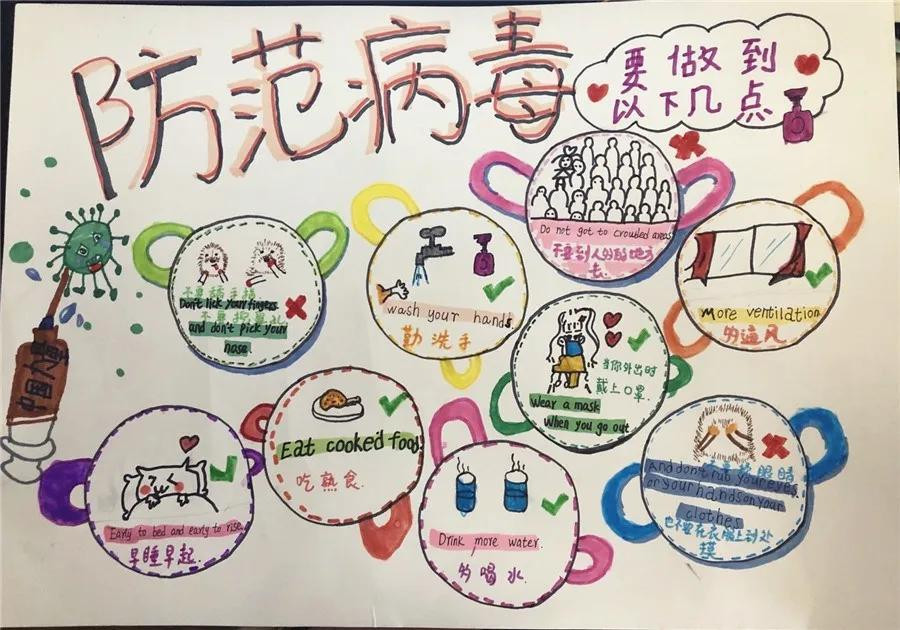 防范病毒
要做到
以下几点
中国力量
不要舔手指
Don't lick your fingers
不要抠鼻孔
and don't pick your
nose.
wash your hands.
勤洗手
Do not got to crowded areas
不要到人多的地方
去.
More ventilation
多通风
当你外出时
戴上口罩.
Wear a mask
When you go out
Eat cooked food
吃熟食.
Early to bed and early to rise.
早睡早起.
Drink more water.
多喝水
不要揉眼睛
And don't rub your eyes.
or your hands on your
clothes
也不要在衣服上到处
摸